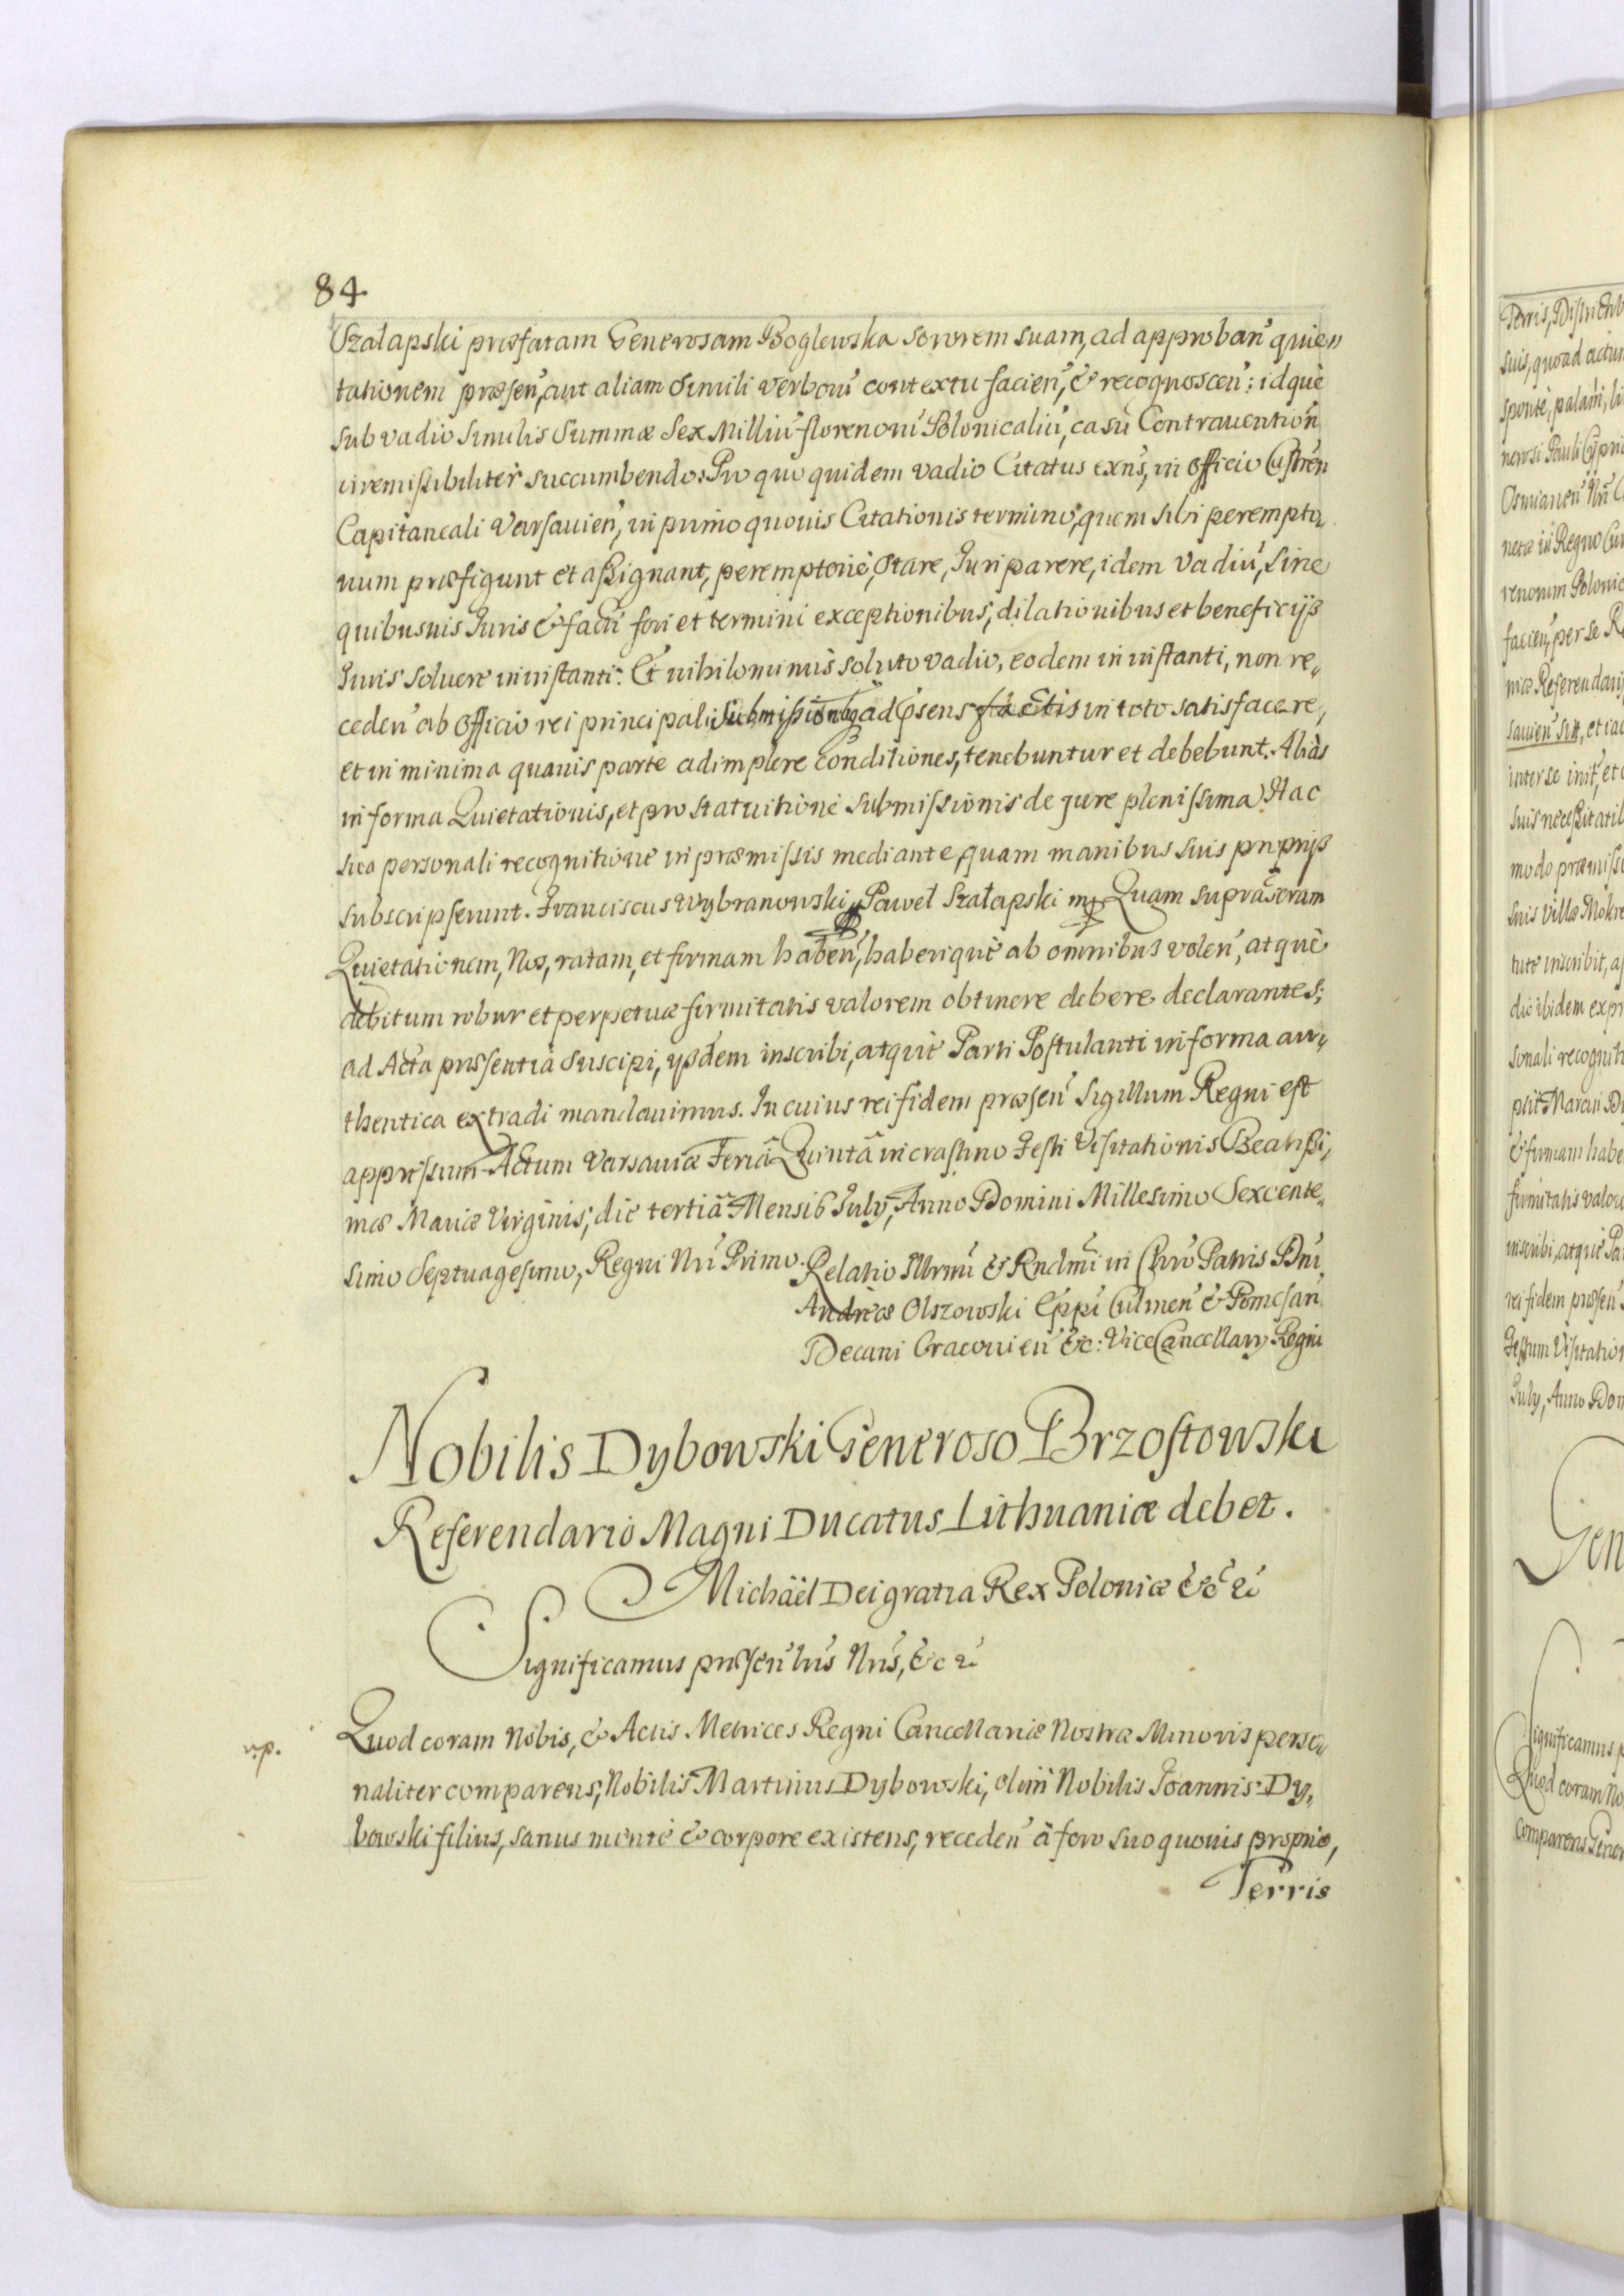 84
Szałapski præfatam Generosam Boglewska sororem suam, ad approban̄ quie„
tationem præsen̄, aut aliam simili verborū contextu facien̄, & recognoscen̄: idquè
sub vadio similis Summæ Sex Milliū florenorū Polonicaliū, casū Contrauention̄
irremissibiliter succumbendo. Pro quo quidem vadio Citatus exn̄s, in Officio Castren̄
Capitaneali Varsauien̄, in primo quouis Citationis termino, quem sibi perempto„
rium præfigunt et assignant, peremptoriè, stare, Juri parere, idem vadiū, sine
quibusuis Juris & facti fori et termini exceptionibus, dilationibus et beneficijs
Juris soluere in instanti. Et nihilominùs soluto vadio, eodem in instanti, non re„
ceden̄ ab Officio rei principali, submissionibq̃ ad p̄sens factis in toto satisfacere,
et in minima quauis parte adimplere conditiones, tenebuntur et debebunt. Aliàs
in forma Quietationis, et pro statuitione submissionis de jure plenissima. Hac
sua personali recognitione in præmissis mediante, quam manibus suis proprijs
subscripserunt. Franciscus Wybranowski, Paweł Szałapski mp. Quam supràscram
Quietationem, Nos, ratam, et firmam haben̄, haberiquè ab omnibus volen̄, atquè
debitum robur et perpetuæ firmitatis valorem obtinere debere declarantes,
ad Acta præsentia suscipi, ijsdem inscribi, atquè Parti Postulanti in forma au„
thentica extradi mandauimus. In cuius rei fidem præsen̄ Sigillum Regni est
appressum. Actum Varsauiæ Feriâ Quintâ in crastino Festi Visitationis Beatissi„
mæ Mariæ Virginis, die tertiâ Mensis July, Anno Domini Millesimo Sexcente„
simo Septuagesimo, Regni Nr̄i Primo. Relatio Illrmi & Rndmi in Chro Patris Dn̄i
Andreæ Olszowski Ep̄pi Culmen̄ & Pomesan̄
Decani Cracouien̄ &c: ViceCancellary Regni
Nobilis Dybowski Generoso Brzostowski
Referendario Magni Ducatus Lithuaniæ debet.
Michäel Dei gratia Rex Poloniæ &c &
Significamus præsen̄tibus Nr̄is, &c &
v.p.
Quod coram Nobis, & Actis Metrices Regni Cancellariæ Nostræ Minoris perso„
naliter comparens, Nobilis Martinus Dybowski, olim Nobilis Joannis Dy„
bowski filius, sanus mente & corpore existens, receden̄ à foro suo quouis proprio,
Terris
Terris, District
suis, quoad actu
sponte, palam, li
nerosi Pauli Cypri
Osmianen̄
netæ in Regno Cur
renorum Polonic
facien̄, per se
niæ Referendari
sauien̄
inter se init, et
suis necessitatib
modo præmiss
suis villæ Mokre
tute inscribit, a
dio ibidem expr
sonali recogniti
psit. Marcin Dy
& firmam habe
firmitatis valore
inscribi, atquè Pa
rei fidem præsen̄
Festum Visitation
July, Anno Dom
Gen
Significamus p
Quod coram No
comparens Gener